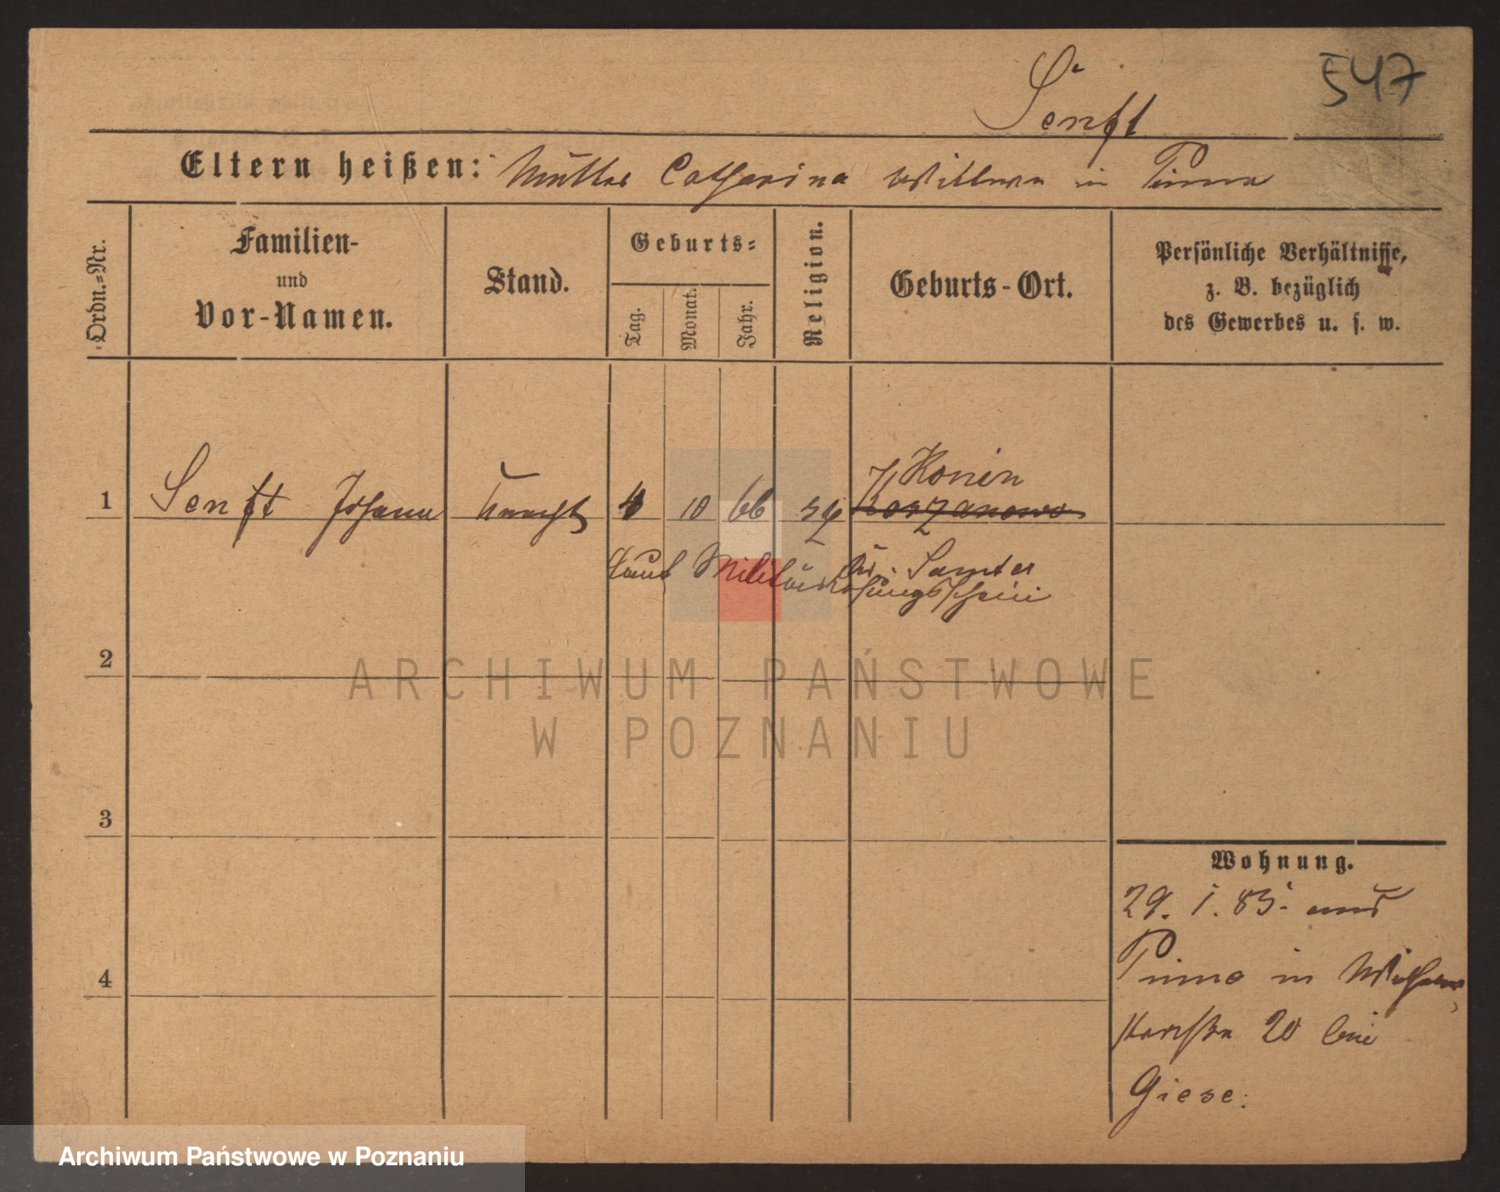 547
Senft
Eltern heißen: Mutter Catharina Wittwe in Pinne
Ordn.-Nr.
Familien-
und
Vor-Namen.
Stand.
Geburts-
Tag.
Monat.
Jahr.
Religion.
Geburts-Ort.
Persönliche Verhältnisse,
z. B. bezüglich
des Gewerbes u. s. w.
Konin
1 Senft Johann Knecht 4 10 66
Kr. Samter
laut Militär
2
ARCHIWUM PAŃSTWOWE
W POZNANIU
3
4
Wohnung.
29. 1. 85. aus
Pinne in
20 bei
Giese.
Archiwum Państwowe w Poznaniu